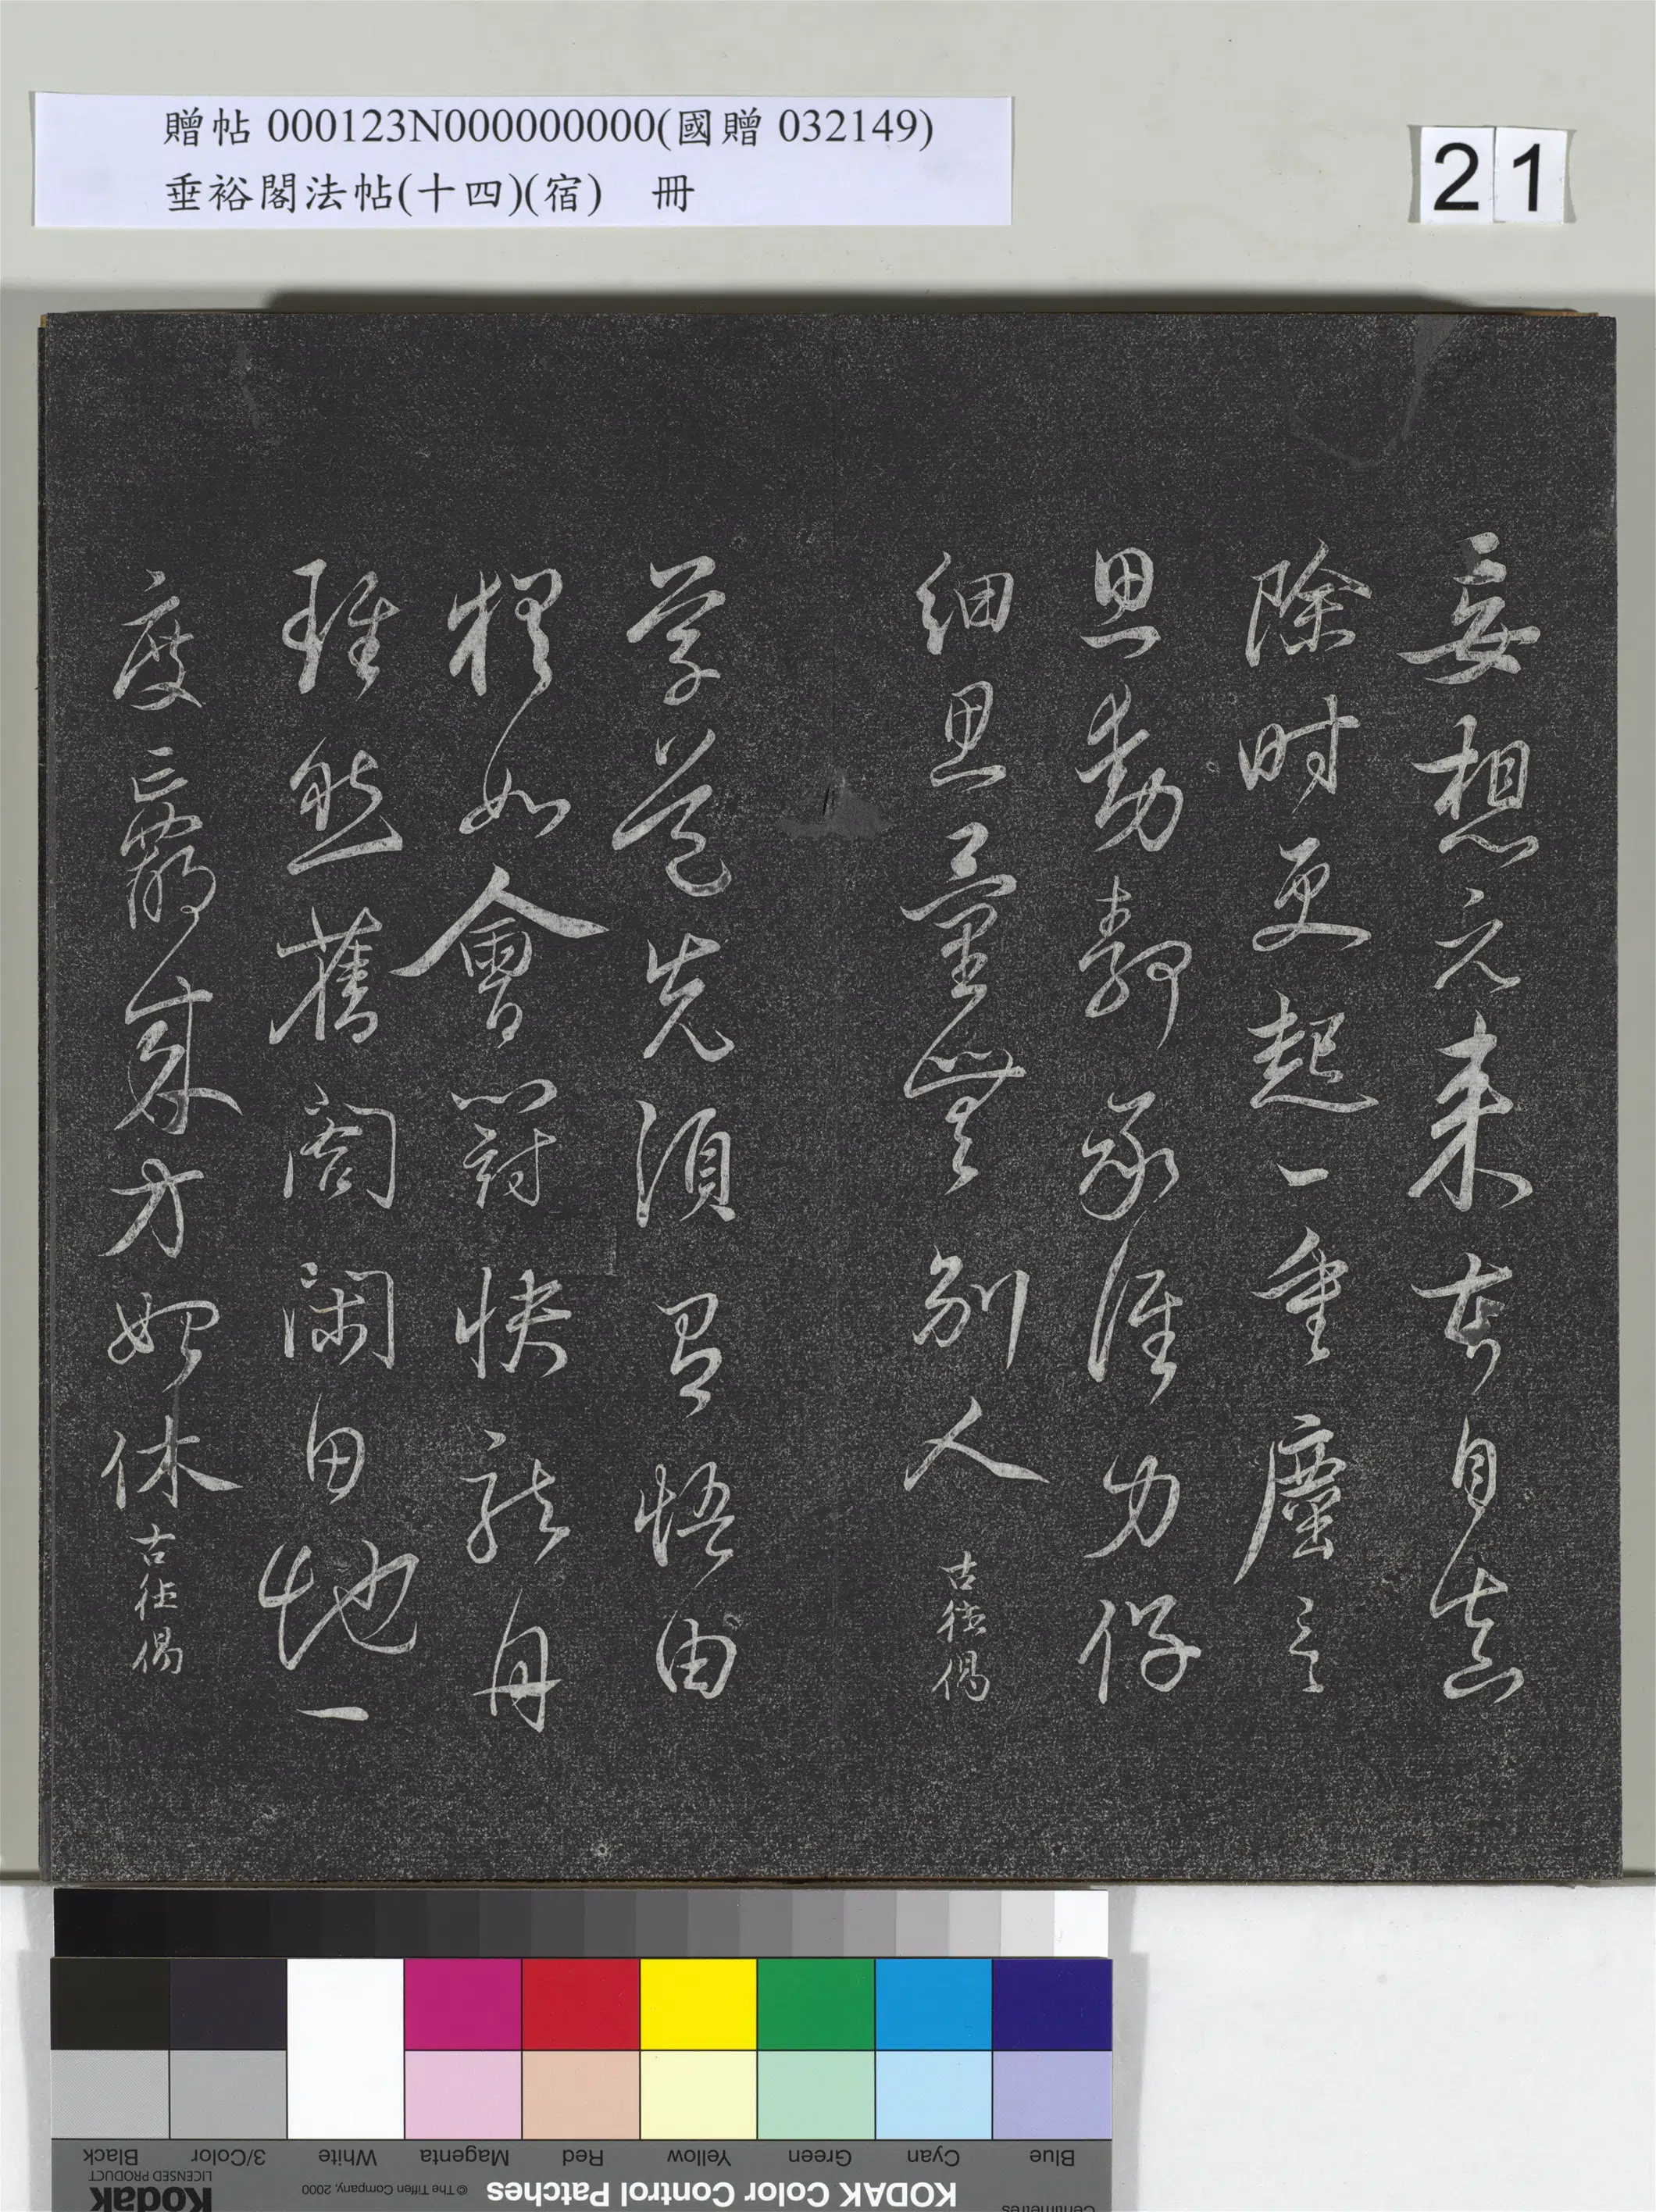 贈帖 000123N000000000(國贈 032149)
垂裕閣法帖(十四)(宿) 冊
21
妄想元来本自真
除时更起一重塵言
思動静承誰力仔
細思量無別人 古德偈
学道先須有悟由
如會鬪快龍舟
雖然舊閣閑田地一
度贏來方始休 古德偈
Blue
Cyan
Green
Yellow
Red
Magenta
White
3/Color
Black
KODAK Color Control Patches
© The Tiffen Company, 2000
Kodak
LICENSED PRODUCT
Centimetres